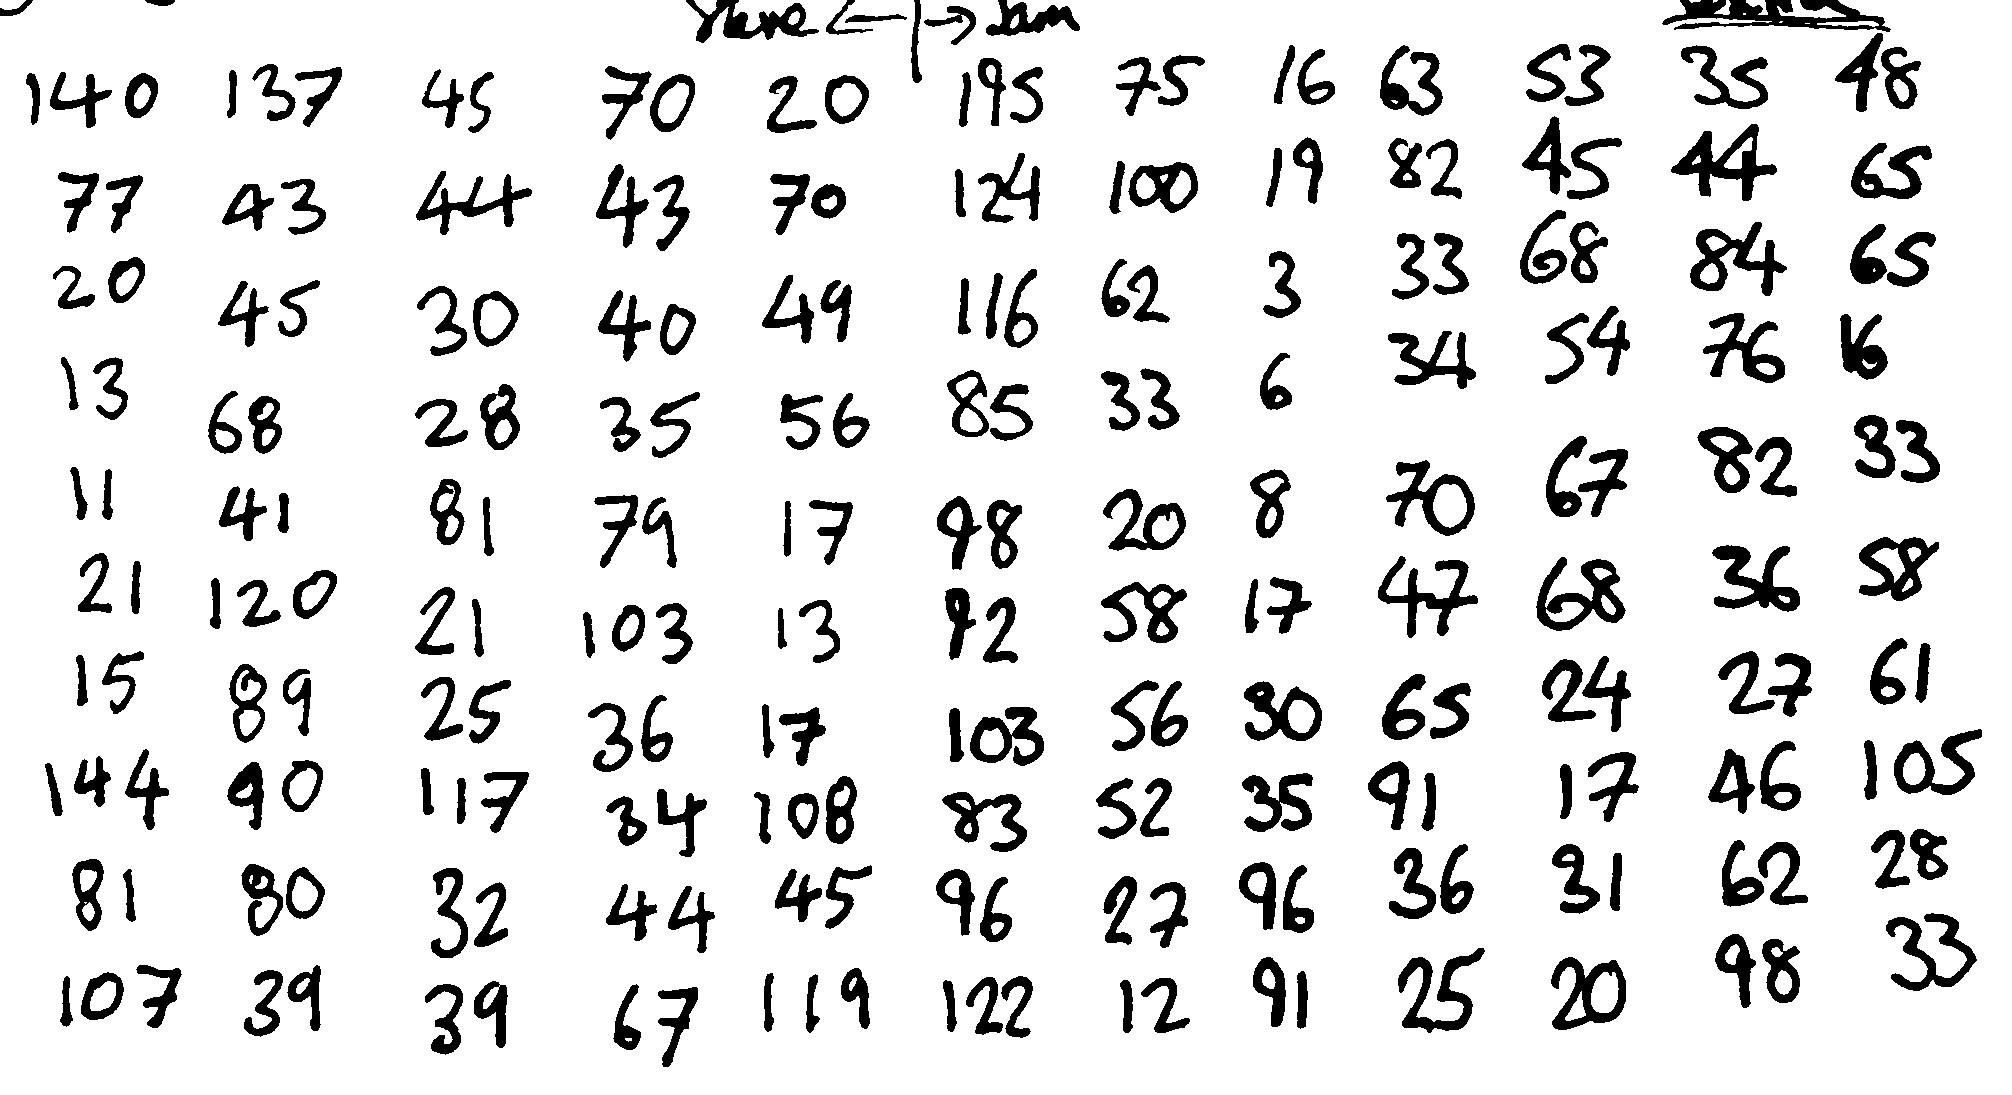 ← | → Sam
140 137 45 70 20 195 75 16 63 53 35 48
77 43 44 43 70 124 100 19 82 45 44 65
20 45 30 40 49 116 62 3 33 68 84 65
13 68 28 35 56 85 33 6 34 54 76 16
11 41 81 79 17 98 20 8 70 67 82 33
21 120 21 103 13 92 58 17 47 68 36 58
15 89 25 36 17 103 56 30 65 24 27 61
144 90 117 34 108 83 52 35 91 17 46 105
81 80 32 44 45 96 27 96 36 31 62 28
107 39 39 67 119 122 12 91 25 20 98 33